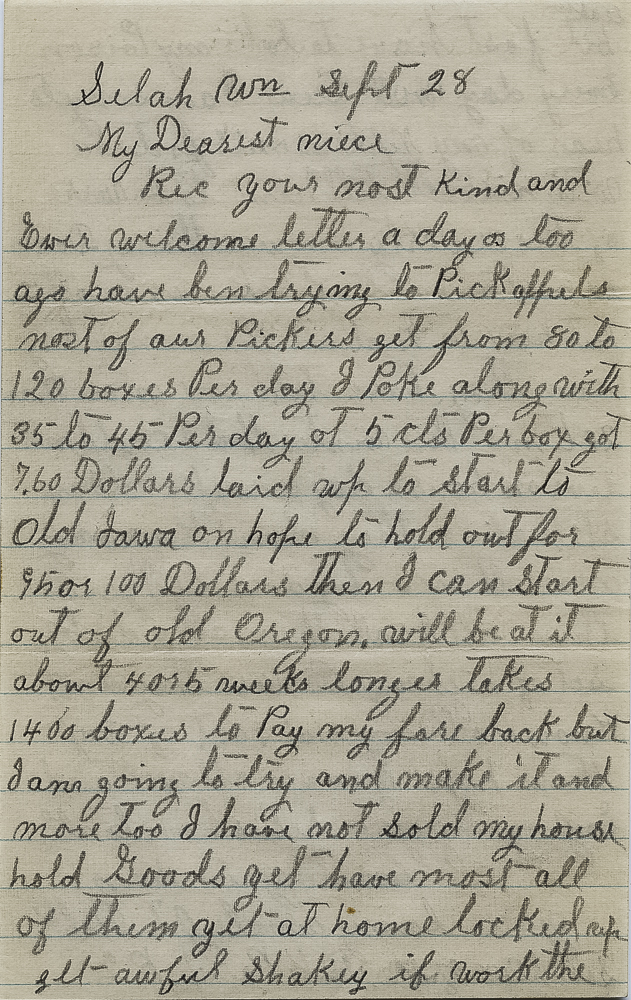 Selah Wn Sept 28
My Dearest niece
Rec your most Kind and
Ever welcome letter a day or too
ago have ben trying to Pick appels
most of our Pickers get from 80 to
120 boxes Per day I Poke along with
35 to 45 Per day at 5 cts Per box got
7.60 Dollars laid up to start to
Old Iowa on hope to hold out for
95 or 100 Dollars then I can start
out of old Oregon, will be at it
about 4 or 5 weeks longer takes
1400 boxes to Pay my fare back but
I am going to try and make it and
more too I have not sold my house
hold Goods yet have most all
of them yet at home locked up
get awful Shakey if work the